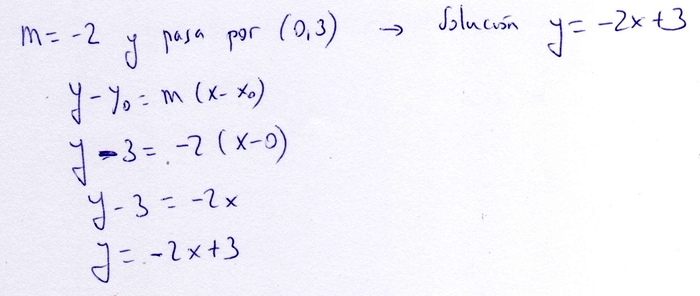 m = -2 y pasa por (0,3) → Solución y = -2x+3
y - y₀ = m (x - x₀)
y - 3 = -2 (x-0)
y - 3 = -2x
y = -2x+3